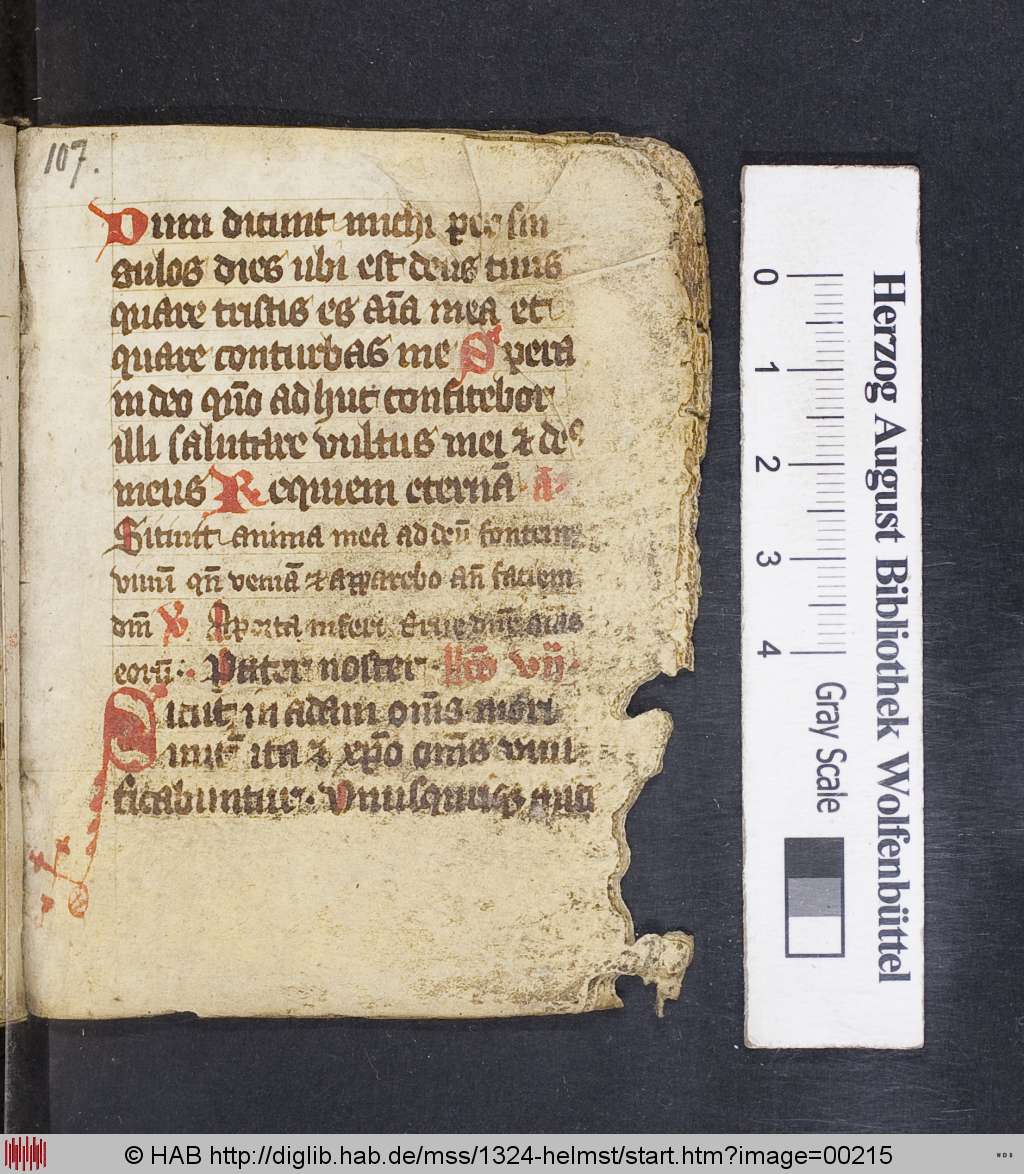 107.
Dum dicunt michi per sin
gulos dies ubi est deus tuus
quare tristis es aīa mea et
quare conturbas me Spera
in deo qm̄o adhuc confitebor
illi salutare vultus mei & de⁹
meus Requiem eternā A
Sitiuit anima mea ad deū fontem
viuū qn̄ veniā & apparebo an̄ faciem
dn̄i V A porta inferi Erue dn̄e aīas
eorū Pater noster Lc̄o vij
Sicut in adam om̄s mori
unt̄ ita & xp̄o om̄s viui
ficabuntur. Vnusquisq
Herzog August Bibliothek Wolfenbüttel
0 1 2 3 4 Gray Scale
© HAB http://diglib.hab.de/mss/1324-helmst/start.htm?image=00215